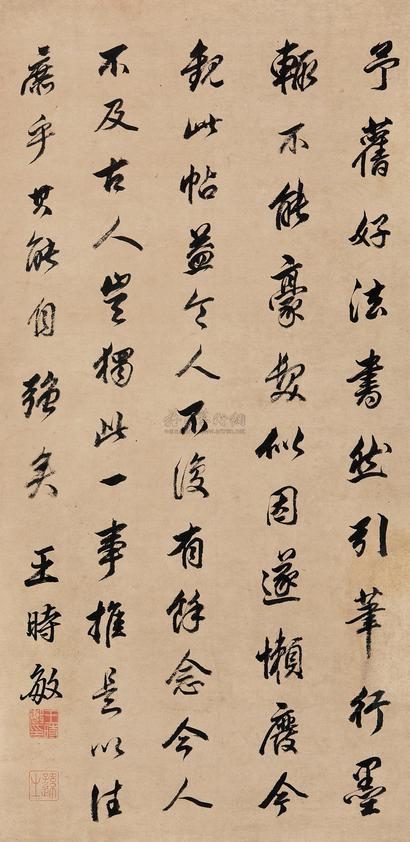 予舊好法書然引筆行墨
輒不能豪髮似因遂懶廢今
觀此帖益令人不復有餘念今人
不及古人豈獨此一事推是以往
庶乎其能自強矣 王時敏